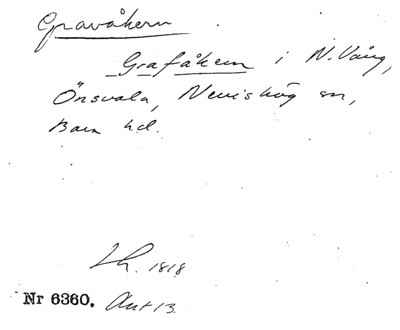 Gravåkern
Grafåkern i N. Vång,
Önsvala, Nevishög sn,
Bara hd.
Lh. 1818
Nr 6360. Akt 13.